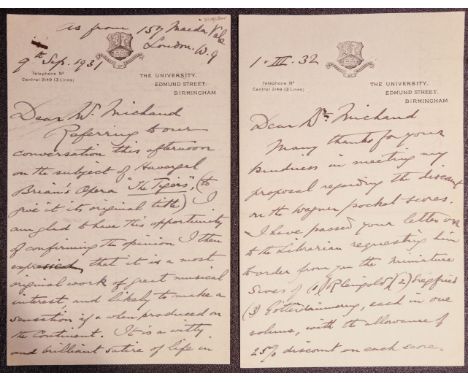 as from 157 Maida Vale
London. W. 9
9th Sep. 1931
Telephone No
Central 8149 (3 Lines)
THE UNIVERSITY,
EDMUND STREET,
BIRMINGHAM
Dear Mr Michaud
Referring to our
conversation this afternoon
on the subject of Havergal
Brian's Opera "The Tigers", (to
give it its original title) I
am glad to have this opportunity
of confirming the opinion I then
expressed, that it is a most
original work of great musical
interest, and likely to make a
sensation if & when produced on
the Continent. It is a witty
and brilliant satire of life in
1. III. 32
Telephone No
Central 8149 (3 Lines)
THE UNIVERSITY,
EDMUND STREET,
BIRMINGHAM
Dear Mr. Michaud
Many thanks for your
kindness in meeting my
proposal regarding the discount
on the Wagner pocket scores.
I have passed your letter on
to the Librarian requesting him
to order from you the miniature
Scores of (1) Rheingold (2) Siegfried
(3) Götterdämmerung, each in one
volume, with the allowance of
25% discount on each score.